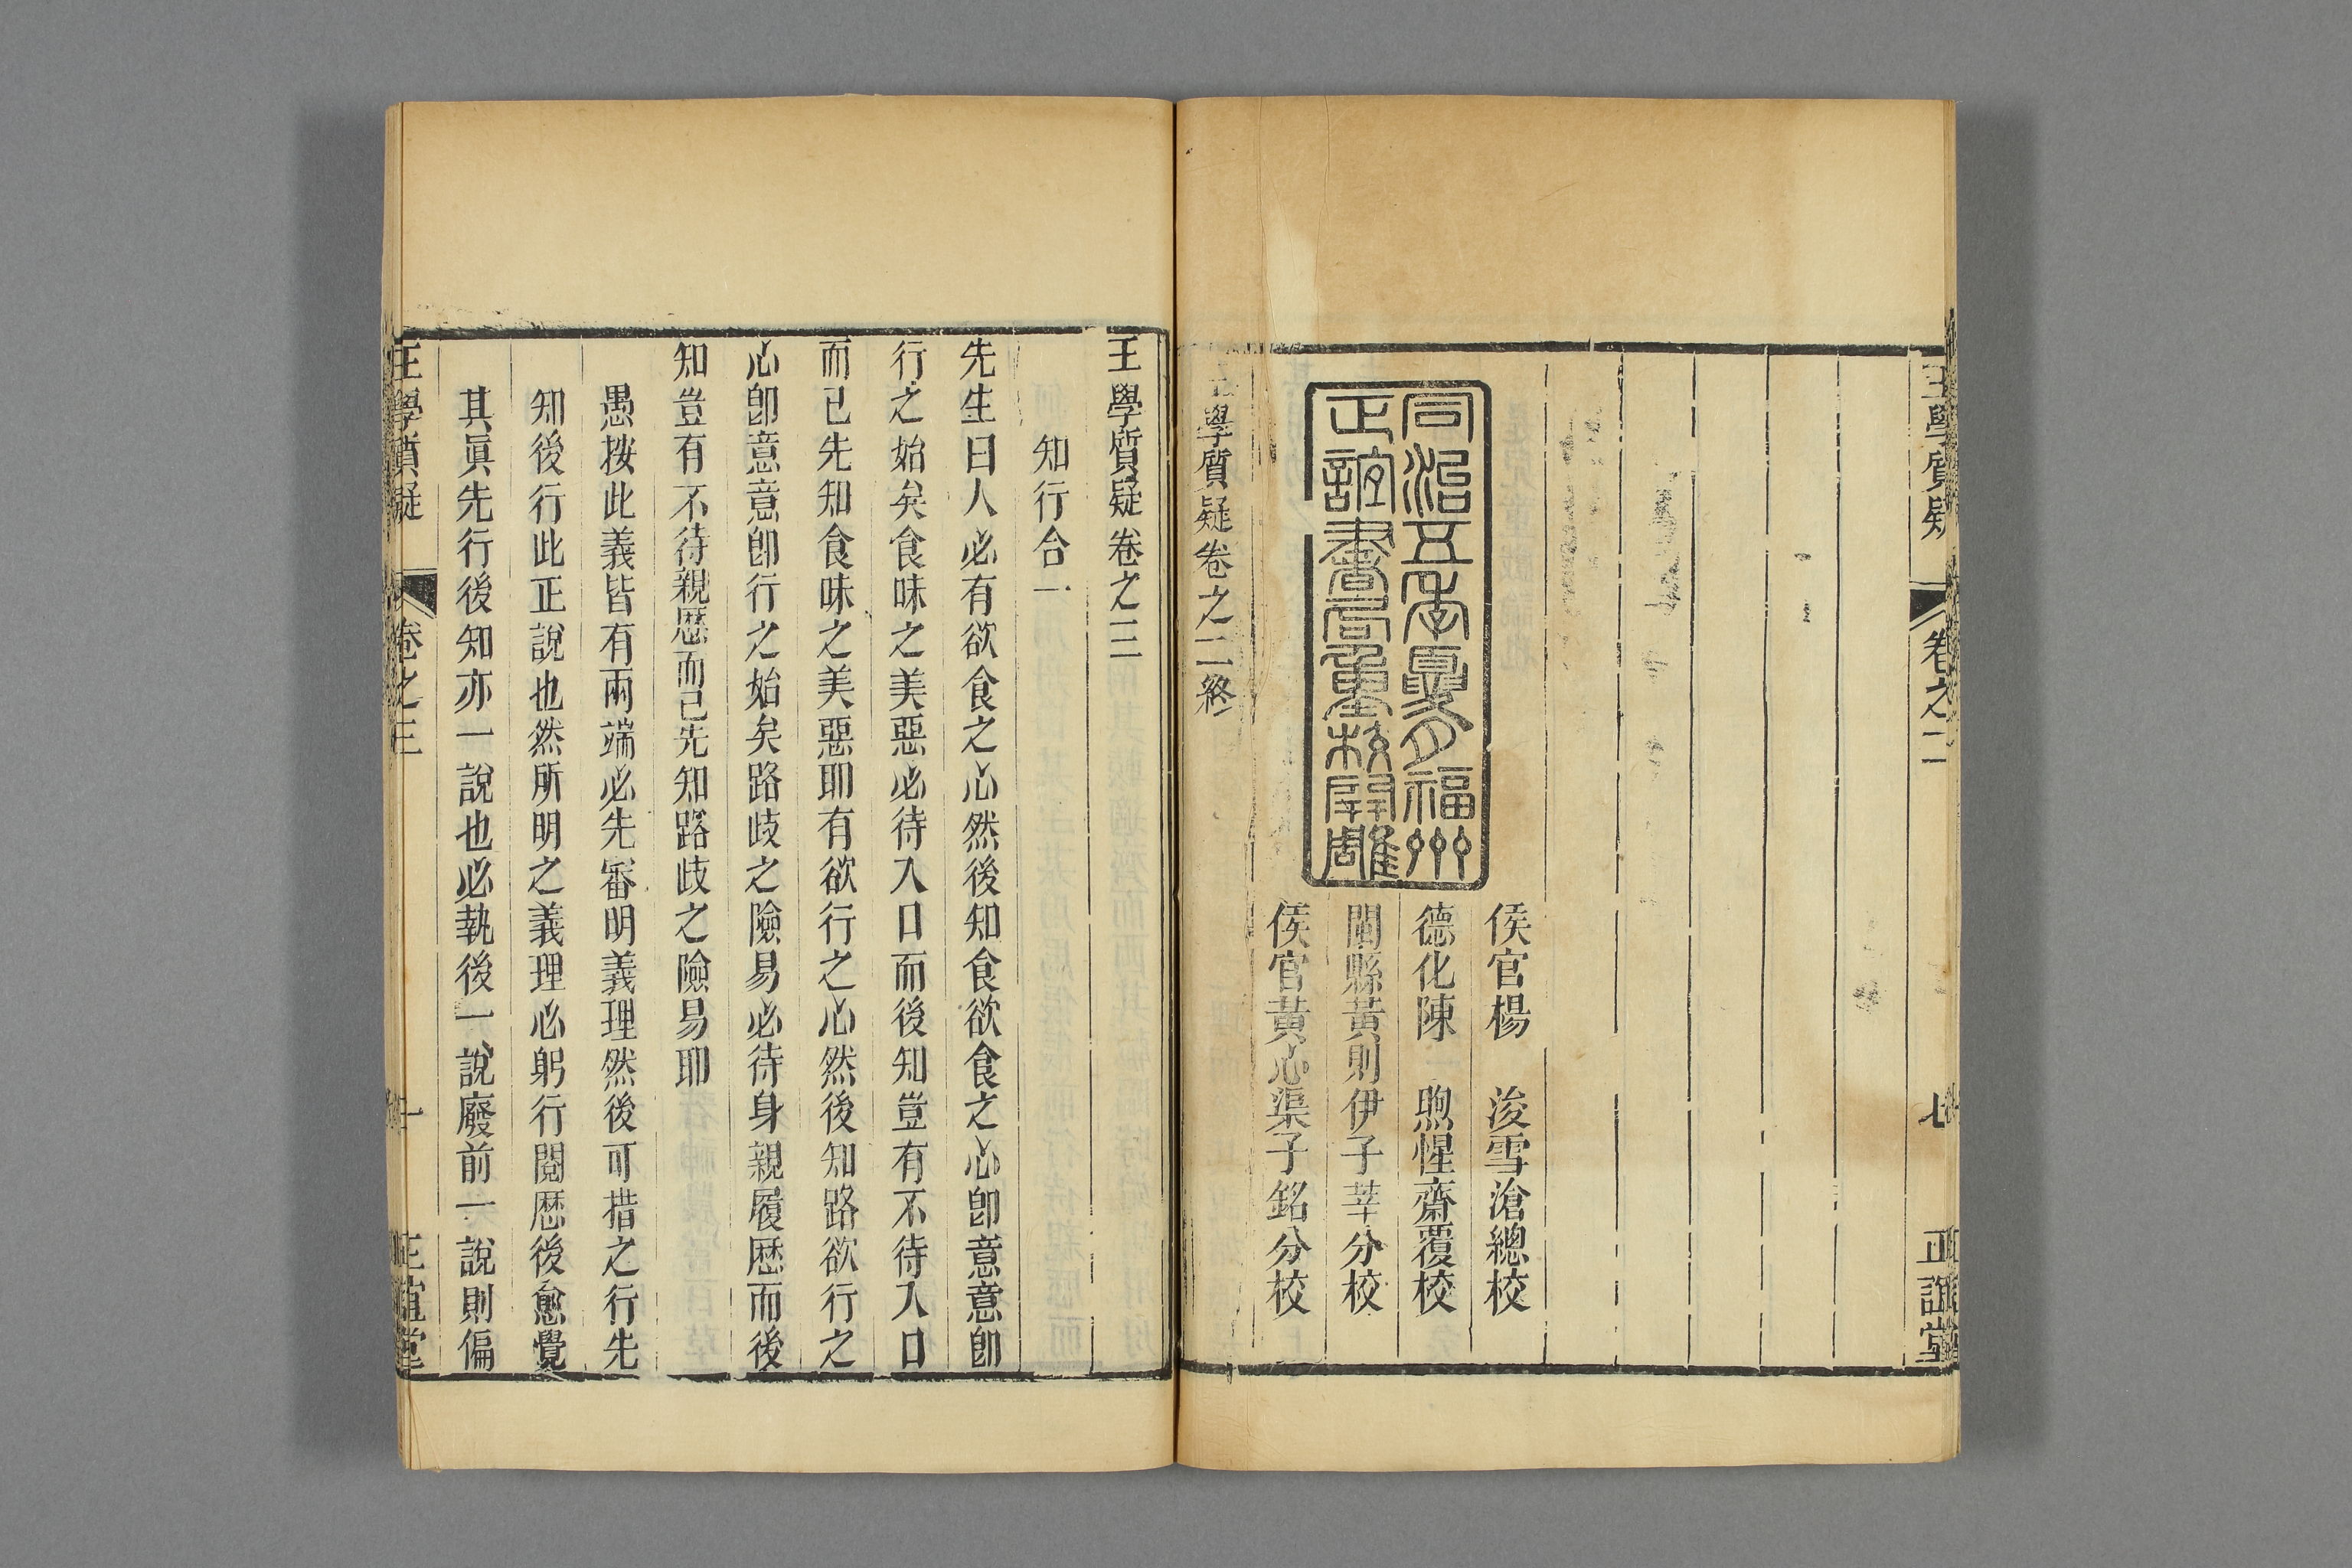 王學質疑
卷之二
七
正誼堂
侯官楊 浚雪滄總校
德化陳 煦惺齋覆校
閩縣黃則伊子莘分校
侯官黃心渠子銘分校
同治五年夏月福州
正誼書局重校開雕
王學質疑卷之二終
王學質疑卷之三
知行合一
先生曰人必有欲食之心然後知食欲食之心卽意意卽
行之始矣食味之美惡必待入口而後知豈有不待入口
而已先知食味之美惡耶有欲行之心然後知路欲行之
心卽意意卽行之始矣路歧之險易必待身親履歷而後
知豈有不待親歷而已先知路歧之險易耶
愚按此義皆有兩端必先審明義理然後可措之行先
知後行此正說也然所明之義理必躬行閱歷後愈覺
其眞先行後知亦一說也必執後一說廢前一說則偏
王學質疑
卷之三
一
正誼堂